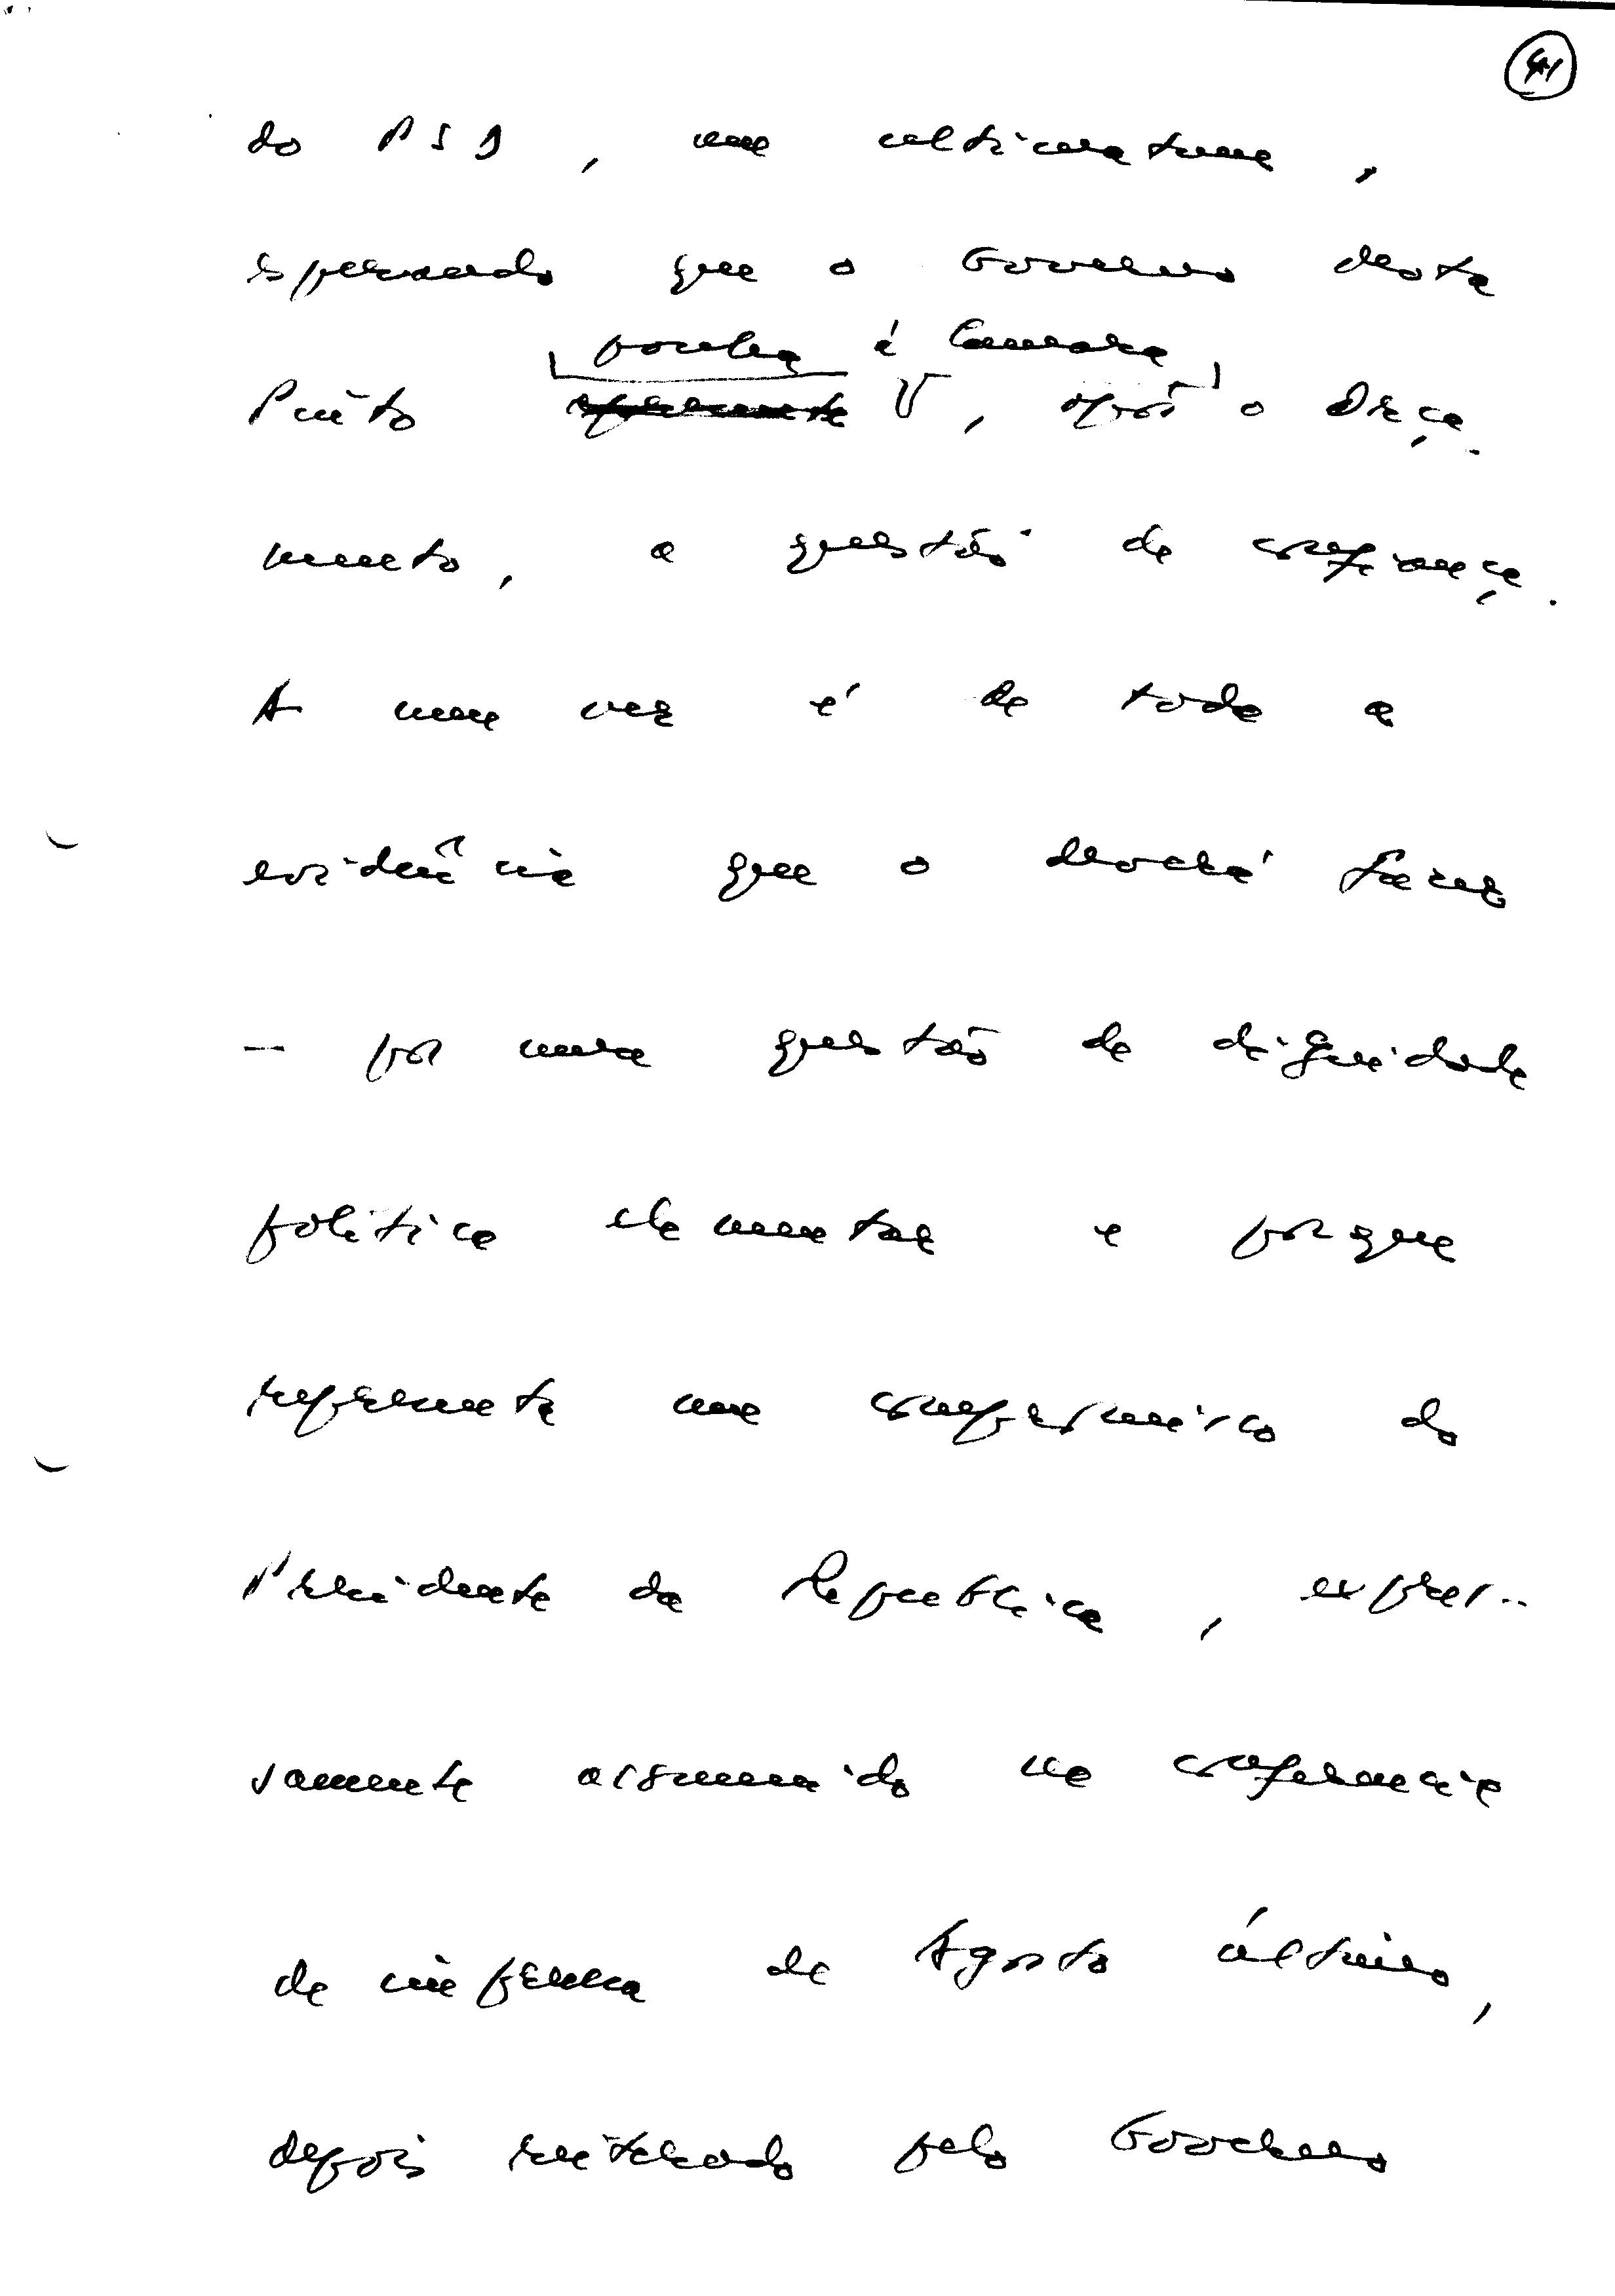 41
do PSD, um ultimatum,
esperando que o Governo Mota
ponha à Câmara
Pinto apresente, após o Orça-
mento, a questão de confiança.
A meu ver é de toda a
evidência que o deverá fazer
— por uma questão de dignidade
política elementar e porque
representa um compromisso do
Presidente da República, expres-
samente assumido na conferência
de imprensa de Agosto último,
depois reiterado pelo Governo